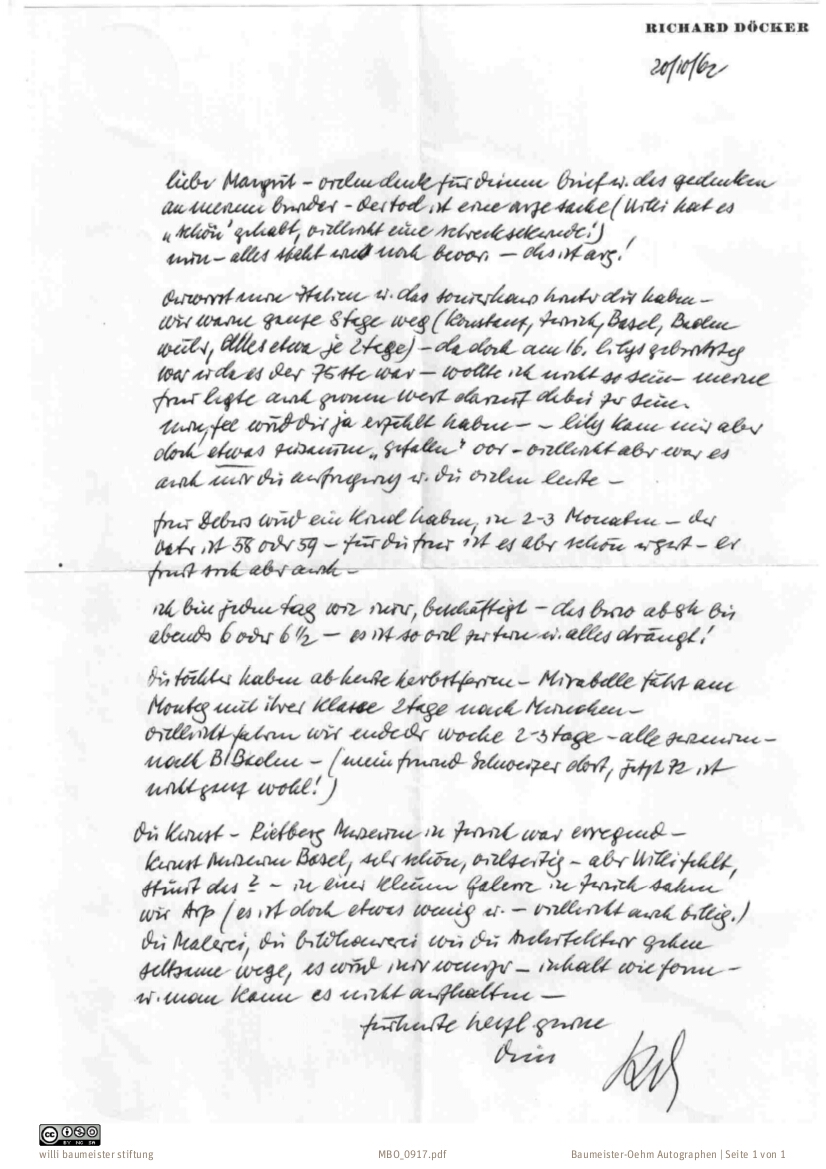 RICHARD DÖCKER
20/10/62
liebe Margrit – vielen dank für deinen brief u. das gedenken
an meinen bruder – der tod ist eine arge sache (Willi hat es
„schön" gehabt, vielleicht eine schrecksekunde!)
nun – alles steht uns noch bevor. – das ist arg!
du wirst nun Italien u. das sommerhaus hinter dir haben –
wir waren ganze 8 tage weg (Konstanz, Zürich, Basel, Baden
weiler, alles etwa je 2 tage) – da doch am 16. lilys geburtstag
war u. da es der 75ste war – wollte ich nicht so sein – meine
frau legte auch grossen wert darauf dabei zu sein.
wird dir ja erzählt haben – – lily kam mir aber
doch etwas zusammen „gefallen" vor – vielleicht aber war es
auch nur die aufregung u. die vielen leute –
frau Debus wird ein kind haben, in 2-3 Monaten – der
vater ist 58 oder 59 – für die frau ist es aber schön u. gut – er
freut sich aber auch –
ich bin jeden tag wie immer, beschäftigt – das büro ab 8h bis
abends 6 oder 6 1/2 – es ist so viel zu tun u. alles drängt!
die töchter haben ab heute herbstferien – Mirabelle fährt am
Montag mit ihrer Klasse 2 tage nach München –
vielleicht fahren wir ende der woche 2-3 tage – alle zusammen –
nach B/Baden – (mein freund Schweizer dort, jetzt 72 ist
nicht ganz wohl!)
die Kunst – Rietberg Museum in Zürich war erregend –
Kunst Museum Basel, sehr schön, vielseitig – aber Willi fehlt,
stimmt das? – in einer kleinen Galerie in Zürich sahen
wir Arp (es ist doch etwas wenig u. – vielleicht auch billig.)
die Malerei, die bildhauerei wie die Architektur gehen
seltsame wege, es wird immer weniger – inhalt wie form –
u. man kann es nicht aufhalten –
für heute herzl. grüsse
dein
willi baumeister stiftung
MBO_0917.pdf
Baumeister-Oehm Autographen | Seite 1 von 1
BY NC SA